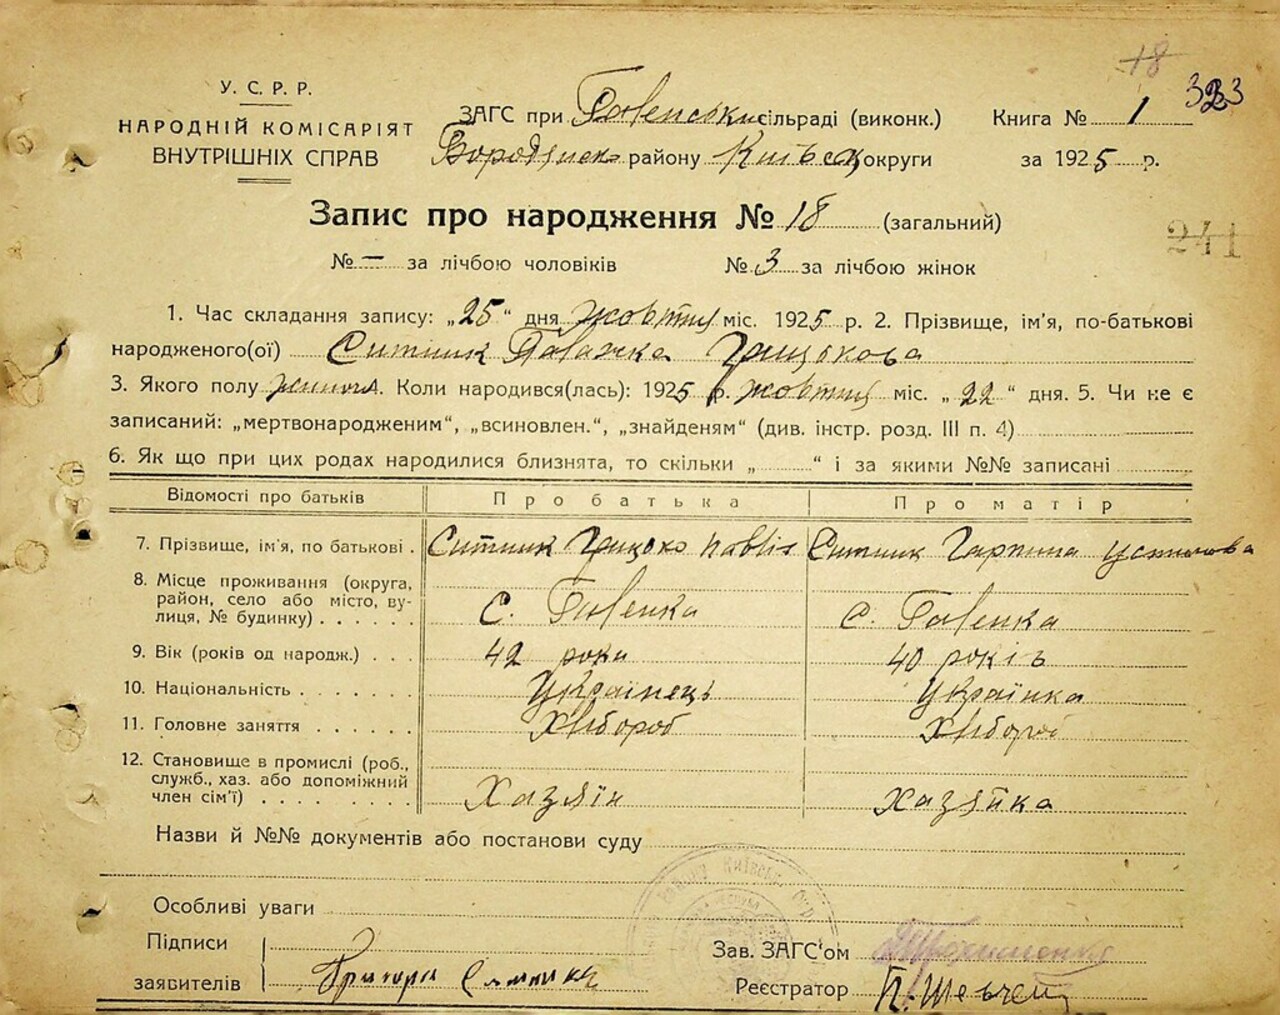 18
323
У. С. Р. Р.
НАРОДНІЙ КОМІСАРІЯТ
ВНУТРІШНІХ СПРАВ
ЗАГС при сільраді (виконк.)
Бородянск району Київськ округи
Книга № 1
за 1925 р.
Запис про народження № 18 (загальний)
241
№ — за лічбою чоловіків № 3 за лічбою жінок
1. Час складання запису: „25“ дня жовтня міс. 1925 р. 2. Прізвище, ім'я, по-батькові
народженого(ої) Ситник Палажка Грицькова
3. Якого полу жиноч. Коли народився(лась): 1925 р. жовтня міс. „22“ дня. 5. Чи не є
записаний: „мертвонародженим“, „всиновлен.“, „знайденям“ (див. інстр. розд. III п. 4)
6. Як що при цих родах народилися близнята, то скільки „ “ і за якими №№ записані
Відомості про батьків Про батька Про матір
7. Прізвище, ім'я, по батькові . Ситник Грицько Павлів Ситник Гарпина Устимова
8. Місце проживання (округа,
район, село або місто, ву-
лиця, № будинку) . . . . . . с. с.
9. Вік (років од народж.) . . . 42 роки 40 років
10. Національність . . . . . . . Українець Українка
11. Головне заняття . . . . . . Хлібороб Хлібороб
12. Становище в промислі (роб.,
служб., хаз. або допоміжний
член сім'ї) . . . . . . . . . . Хазяїн хазяйка
Назви й №№ документів або постанови суду
Особливі уваги
Підписи
заявителів Григори Ситник
Зав. ЗАГС'ом
Реєстратор П. Шевчен